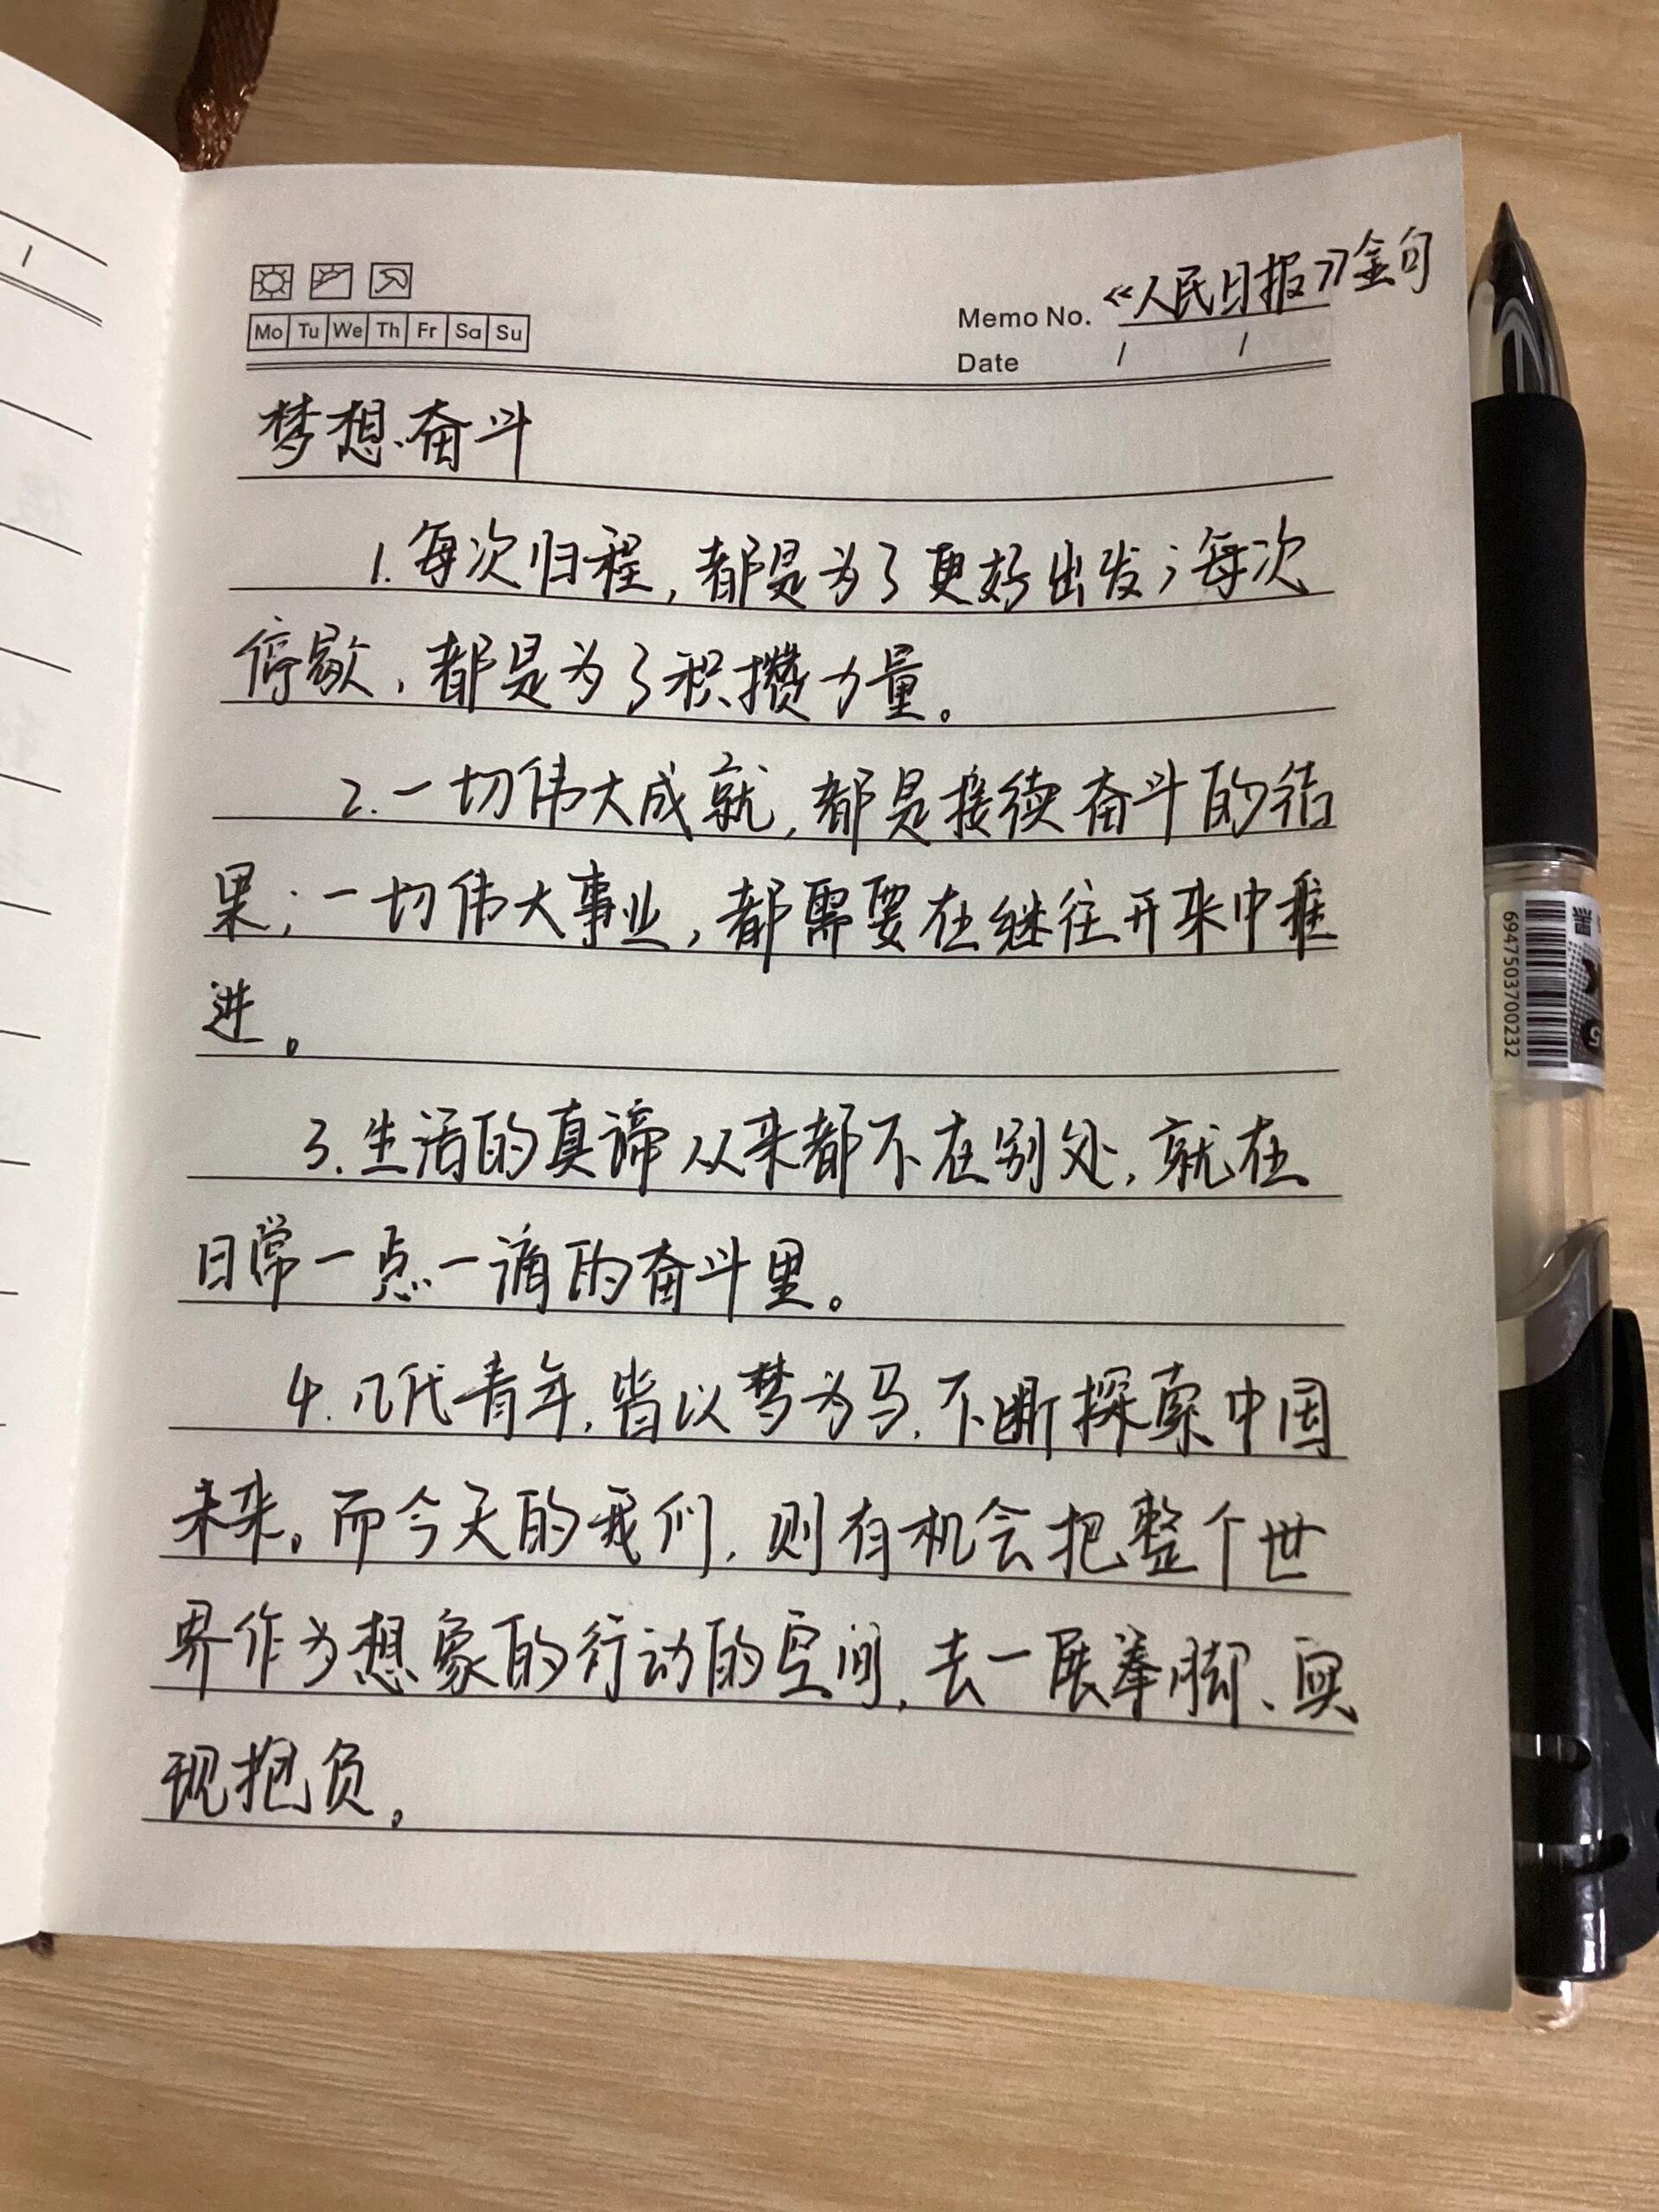 《人民日报》金句
Memo No.
Mo Tu We Th Fr Sa Su
Date / /
梦想、奋斗
1.每次归程,都是为了更好出发;每次
停歇,都是为了积攒力量。
2.一切伟大成就,都是接续奋斗的结
果;一切伟大事业,都需要在继往开来中推
进。
3.生活的真谛从来都不在别处,就在
日常一点一滴的奋斗里。
4.几代青年,皆以梦为马,不断探索中国
未来。而今天的我们,则有机会把整个世
界作为想象的行动的空间,去一展拳脚、实
现抱负。
6947503700232